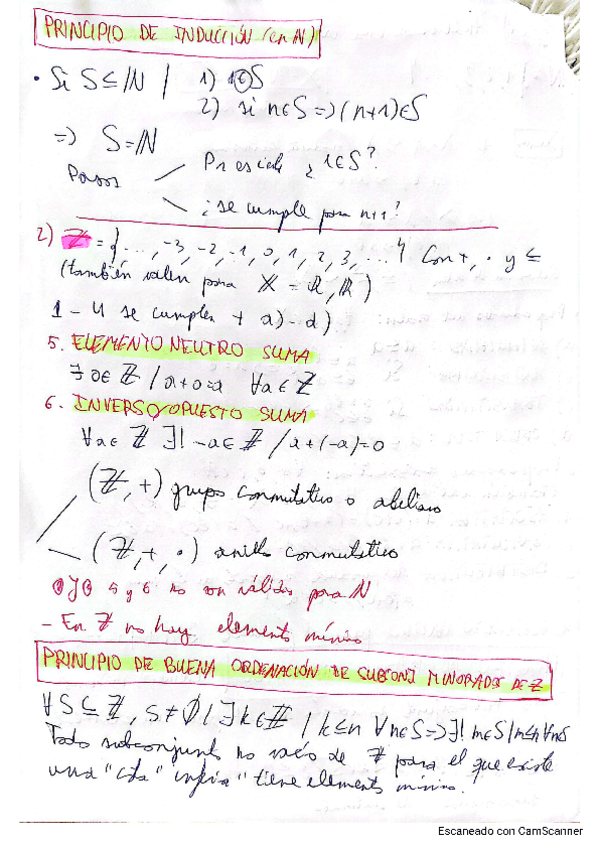 PRINCIPIO DE INDUCCIÓN (en ℕ)
• Si S ⊆ ℕ / 1) 1∈S
2) si n∈S => (n+1)∈S
=> S=ℕ
Pasos
¿1∈S?
¿se cumple para n+1?
2) ℤ = {..., -3, -2, -1, 0, 1, 2, 3, ...} Con +, · y ≤
(también valen para X = ℚ, ℝ)
1 - 4 se cumplen + a) - d)
5. ELEMENTO NEUTRO SUMA
∃ 0∈ℤ / a+0=a ∀a∈ℤ
6. INVERSO/OPUESTO SUMA
∀a∈ℤ ∃! -a∈ℤ / a+(-a)=0
(ℤ, +) grupo conmutativo o abeliano
(ℤ, +, ·) anillo conmutativo
OJO 5 y 6 no son válidos para ℕ
- En ℤ no hay elemento mínimo
PRINCIPIO DE BUENA ORDENACIÓN DE SUBCONJ MINORADOS DE ℤ
∀S⊆ℤ, S≠∅ / ∃k∈ℤ / k≤n ∀n∈S => ∃! m∈S / m≤n ∀n∈S
Todo subconjunto no vacío de ℤ para el que existe
una "cota" inferior" tiene elemento mínimo.
Escaneado con CamScanner